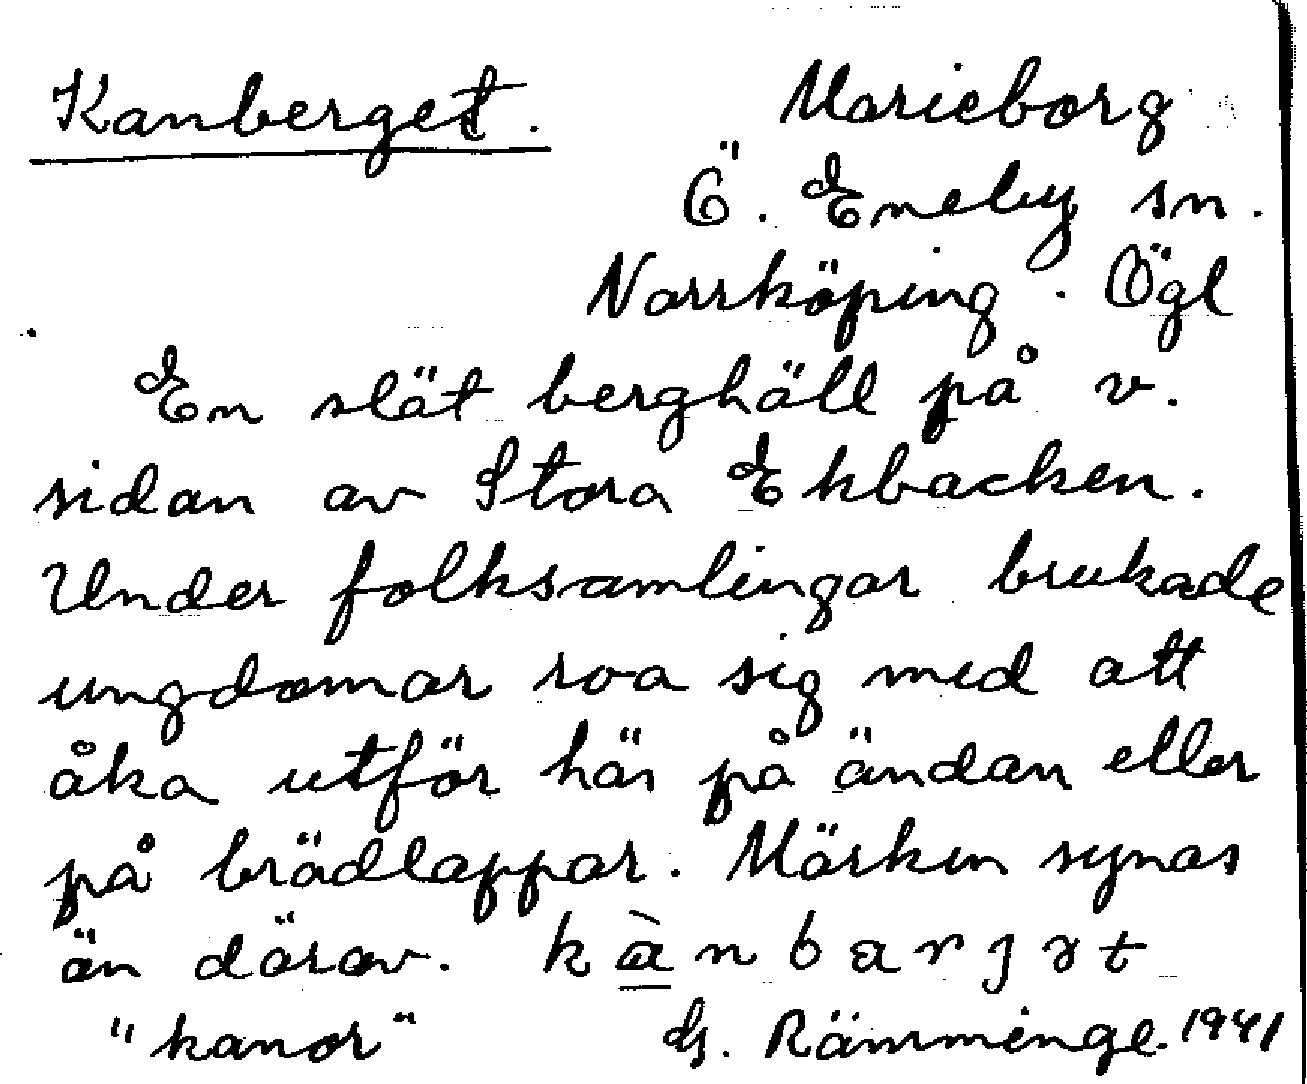 Kanberget. Marieborg
Ö. Eneby sn.
Norrköping. Ögl
En slät berghäll på v.
sidan av Stora Ekbacken.
Under folksamlingar brukade
ungdomar roa sig med att
åka utför här på ändan eller
på brädlappar. Märken synas
än därav. kànbarjət
"kanor" G. Rämminge. 1941